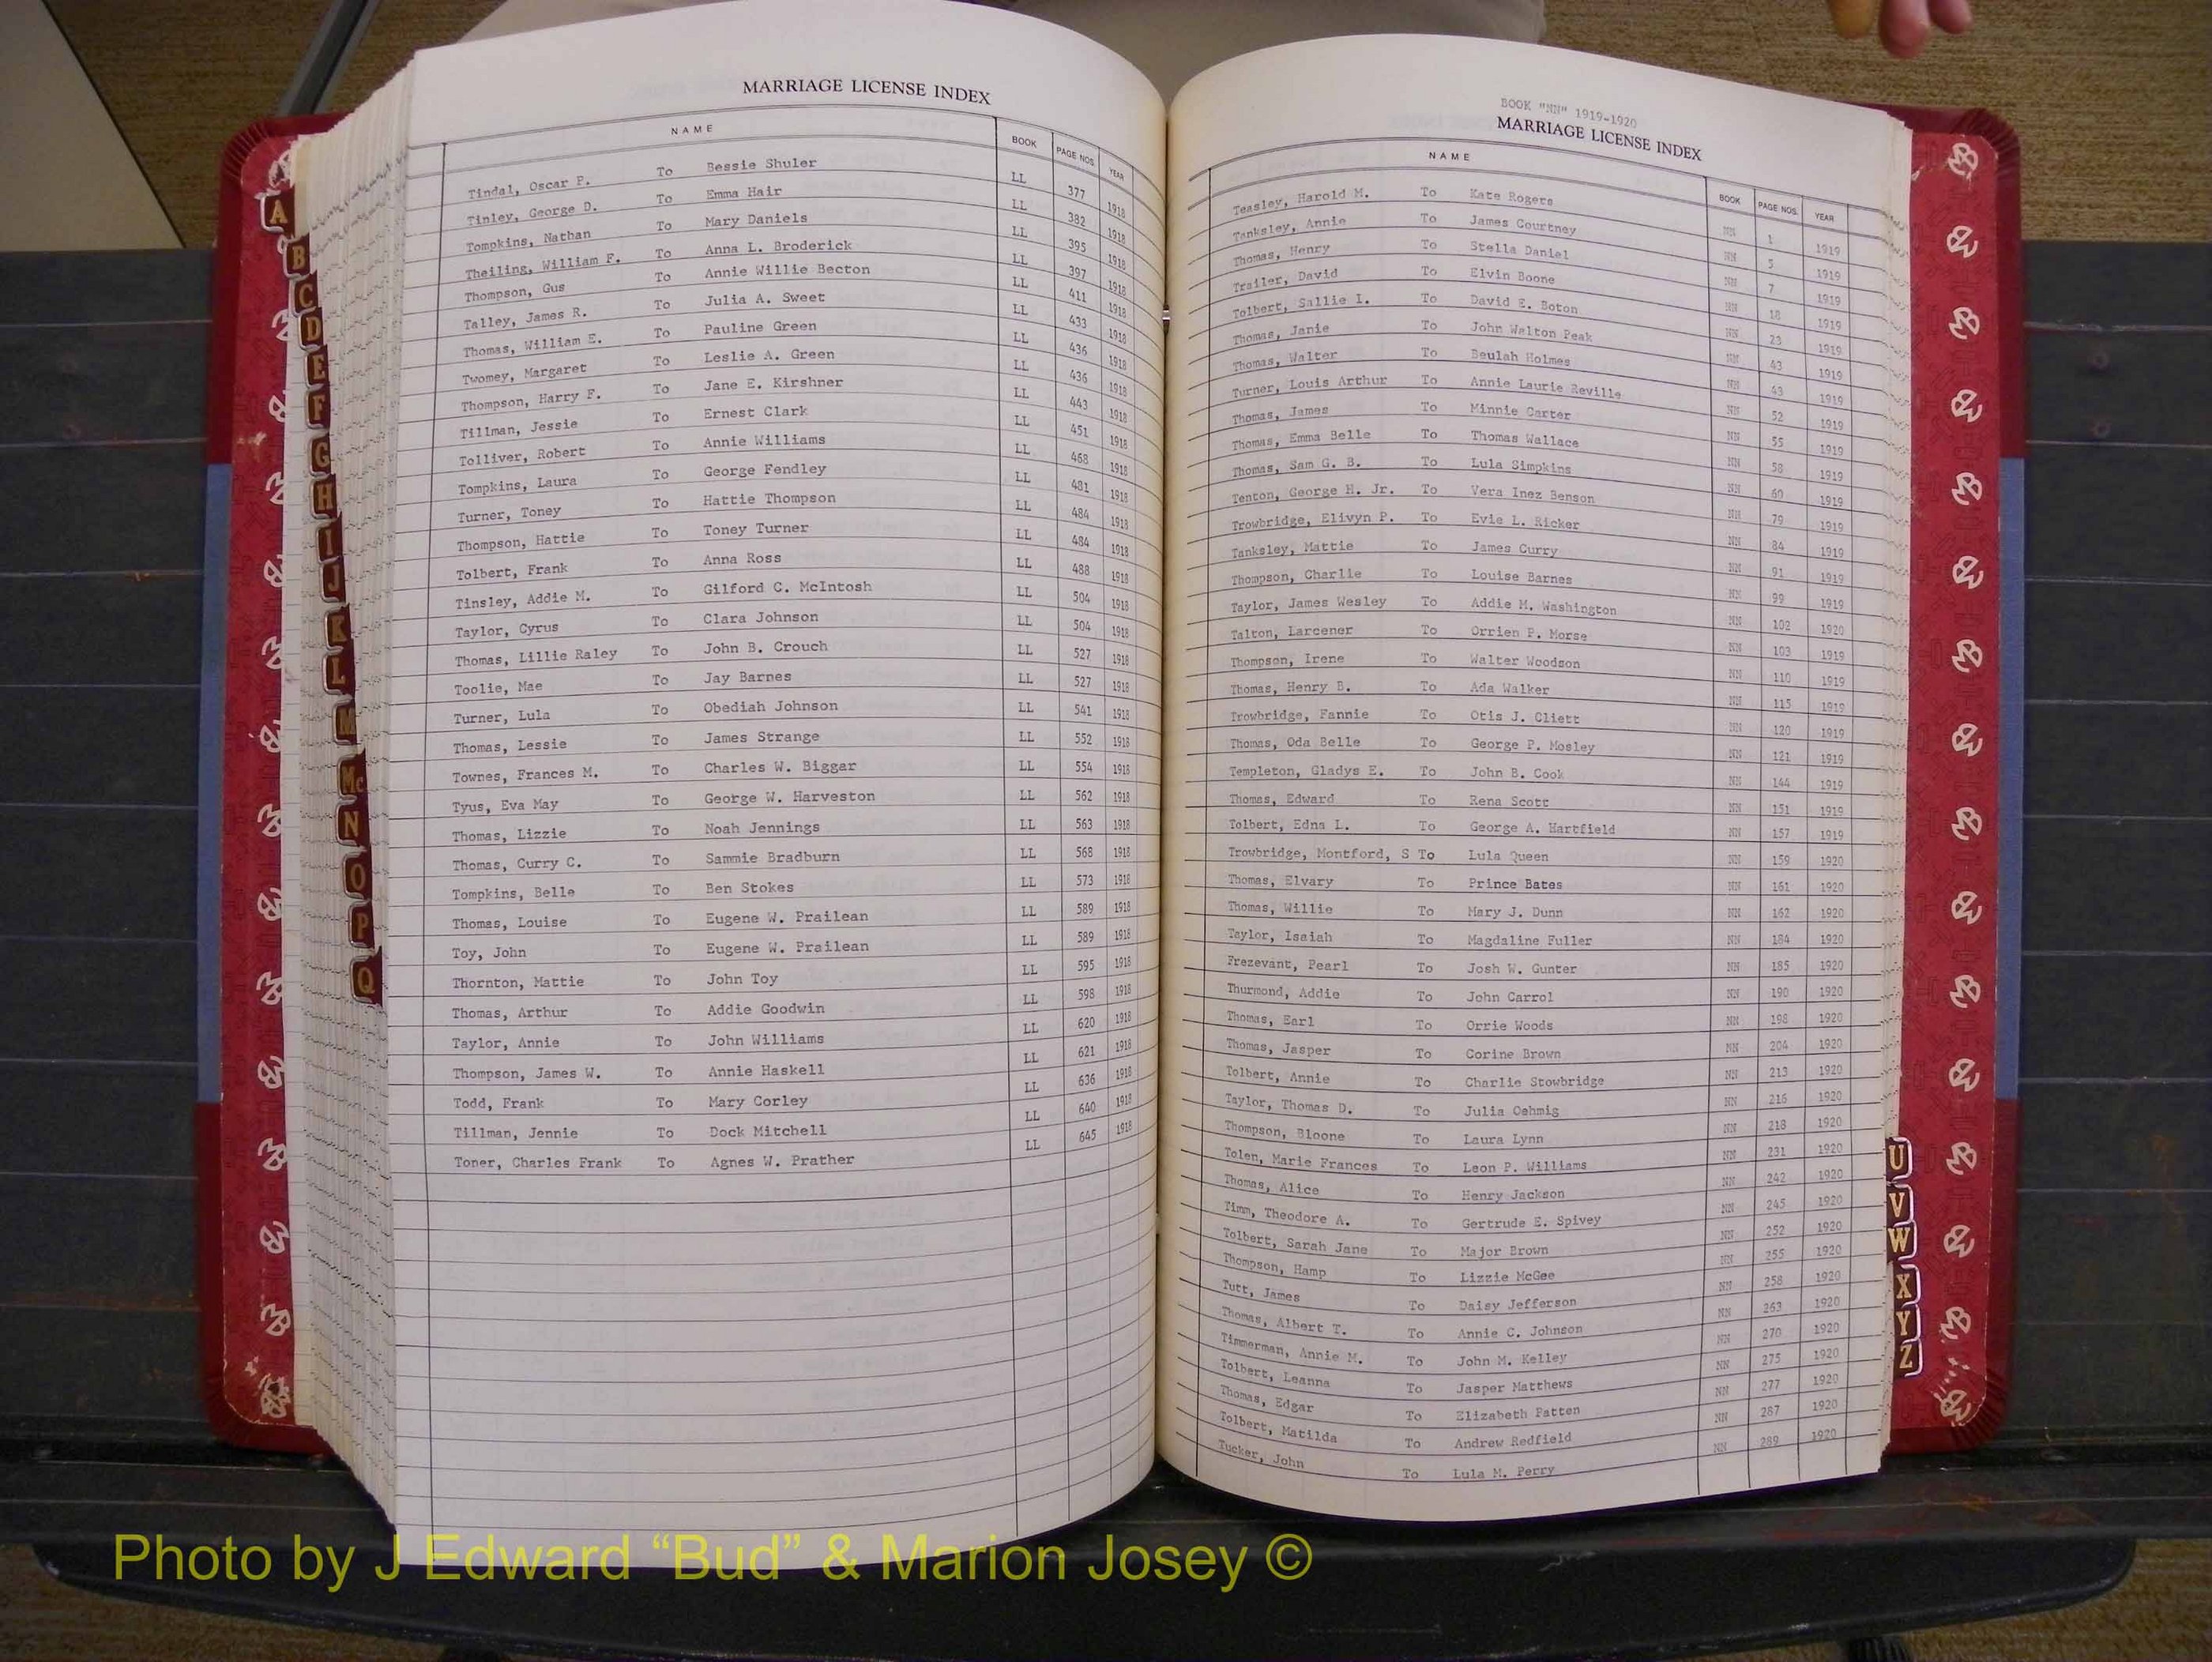 MARRIAGE LICENSE INDEX
NAME BOOK PAGE NOS. YEAR
Tindal, Oscar P. To Bessie Shuler LL 377 1918
Tinley, George D. To Emma Hair LL 382 1918
Tompkins, Nathan To Mary Daniels LL 395 1918
Theiling, William F. To Anna L. Broderick LL 397 1918
Thompson, Gus To Annie Willie Becton LL 411 1918
Talley, James R. To Julia A. Sweet LL 433 1918
Thomas, William E. To Pauline Green LL 436 1918
Twomey, Margaret To Leslie A. Green LL 436 1918
Thompson, Harry F. To Jane E. Kirshner LL 443 1918
Tillman, Jessie To Ernest Clark LL 451 1918
Tolliver, Robert To Annie Williams LL 468 1918
Tompkins, Laura To George Fendley LL 481 1918
Turner, Toney To Hattie Thompson LL 484 1918
Thompson, Hattie To Toney Turner LL 484 1918
Tolbert, Frank To Anna Ross LL 488 1918
Tinsley, Addie M. To Gilford C. McIntosh LL 504 1918
Taylor, Cyrus To Clara Johnson LL 504 1918
Thomas, Lillie Raley To John B. Crouch LL 527 1918
Toolie, Mae To Jay Barnes LL 527 1918
Turner, Lula To Obediah Johnson LL 541 1918
Thomas, Lessie To James Strange LL 552 1918
Townes, Frances M. To Charles W. Biggar LL 554 1918
Tyus, Eva May To George W. Harveston LL 562 1918
Thomas, Lizzie To Noah Jennings LL 563 1918
Thomas, Curry C. To Sammie Bradburn LL 568 1918
Tompkins, Belle To Ben Stokes LL 573 1918
Thomas, Louise To Eugene W. Prailean LL 589 1918
Toy, John To Eugene W. Prailean LL 589 1918
Thornton, Mattie To John Toy LL 595 1918
Thomas, Arthur To Addie Goodwin LL 598 1918
Taylor, Annie To John Williams LL 620 1918
Thompson, James W. To Annie Haskell LL 621 1918
Todd, Frank To Mary Corley LL 636 1918
Tillman, Jennie To Dock Mitchell LL 640 1918
Toner, Charles Frank To Agnes W. Prather LL 645 1918
BOOK "NN" 1919-1920
MARRIAGE LICENSE INDEX
NAME BOOK PAGE NOS. YEAR
Teasley, Harold M. To Kate Rogers NN 1 1919
Tanksley, Annie To James Courtney NN 5 1919
Thomas, Henry To Stella Daniel NN 7 1919
Trailer, David To Elvin Boone NN 18 1919
Tolbert, Sallie I. To David E. Boton NN 23 1919
Thomas, Janie To John Walton Peak NN 43 1919
Thomas, Walter To Beulah Holmes NN 43 1919
Turner, Louis Arthur To Annie Laurie Reville NN 52 1919
Thomas, James To Minnie Carter NN 55 1919
Thomas, Emma Belle To Thomas Wallace NN 58 1919
Thomas, Sam G. B. To Lula Simpkins NN 60 1919
Tenton, George H. Jr. To Vera Inez Benson NN 79 1919
Trowbridge, Elivyn P. To Evie L. Ricker NN 84 1919
Tanksley, Mattie To James Curry NN 91 1919
Thompson, Charlie To Louise Barnes NN 99 1919
Taylor, James Wesley To Addie M. Washington NN 102 1920
Talton, Larcener To Orrien P. Morse NN 103 1919
Thompson, Irene To Walter Woodson NN 110 1919
Thomas, Henry B. To Ada Walker NN 115 1919
Trowbridge, Fannie To Otis J. Cliett NN 120 1919
Thomas, Oda Belle To George P. Mosley NN 121 1919
Templeton, Gladys E. To John B. Cook NN 144 1919
Thomas, Edward To Rena Scott NN 151 1919
Tolbert, Edna L. To George A. Hartfield NN 157 1919
Trowbridge, Montford, S To Lula Queen NN 159 1920
Thomas, Elvary To Prince Bates NN 161 1920
Thomas, Willie To Mary J. Dunn NN 162 1920
Taylor, Isaiah To Magdaline Fuller NN 184 1920
Frezevant, Pearl To Josh W. Gunter NN 185 1920
Thurmond, Addie To John Carrol NN 190 1920
Thomas, Earl To Orrie Woods NN 198 1920
Thomas, Jasper To Corine Brown NN 204 1920
Tolbert, Annie To Charlie Stowbridge NN 213 1920
Taylor, Thomas D. To Julia Oehmig NN 216 1920
Thompson, Bloone To Laura Lynn NN 218 1920
Tolen, Marie Frances To Leon P. Williams NN 231 1920
Thomas, Alice To Henry Jackson NN 242 1920
Timm, Theodore A. To Gertrude E. Spivey NN 245 1920
Tolbert, Sarah Jane To Major Brown NN 252 1920
Thompson, Hamp To Lizzie McGee NN 255 1920
Tutt, James To Daisy Jefferson NN 258 1920
Thomas, Albert T. To Annie C. Johnson NN 263 1920
Timmerman, Annie M. To John M. Kelley NN 270 1920
Tolbert, Leanna To Jasper Matthews NN 275 1920
Thomas, Edgar To Elizabeth Patten NN 277 1920
Tolbert, Matilda To Andrew Redfield NN 287 1920
Tucker, John To Lula M. Perry NN 289 1920
A
B
C
D
E
F
G
H
I
J
K
L
M
Mc
N
O
P
Q
U
V
W
X
Y
Z
Photo by J Edward “Bud” & Marion Josey ©